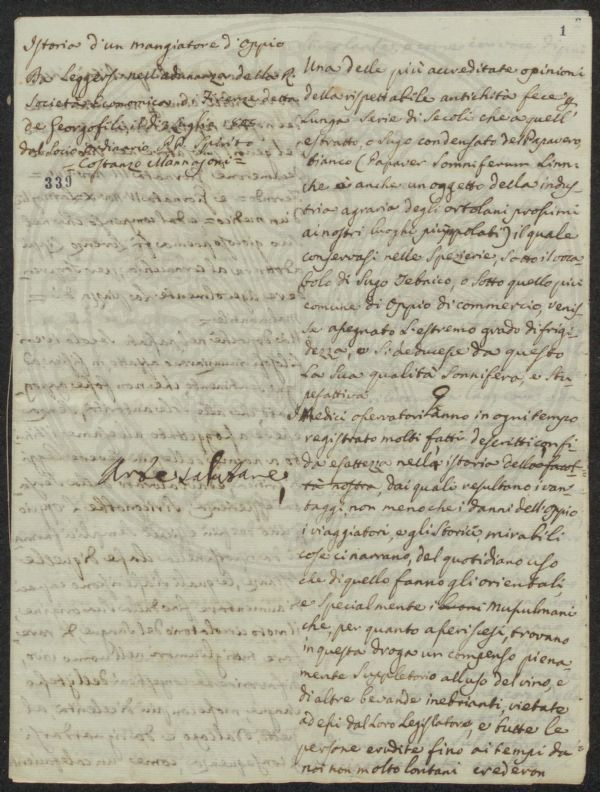 1
Istoria d'un mangiatore d'oppio
Da Leggersi nell'adunanza della R.
Società Economica di Firenze detta
de Georgofili il dì 2 Luglio
dal Socio Ordinario
Costanzo Mannajoni
339
Una delle più accreditate opinioni
della rispettabile antichità fece p
lunga serie di secoli che a quell'
estratto, o sugo condensato del Papavero
bianco (Papaver Somniferum Linn=
che è anche un oggetto della indus
tria agraria degli ortolani prossimi
ai nostri luoghi più popolati) il quale
conservasi nelle Spezierie, sotto il voca
bolo di Sugo Tebaico, o sotto quello più
comune di Oppio di commercio, venis
se assegnato L'estremo grado di frigi
dezza, e si deducesse da questo
La sua qualità Sonnifera, e Stu
pefattiva.
I Medici osservatori anno in ogni tempo
registrato molti fatti descritti con fi
da esattezza nella istoria dell'
arte salutare,
tà nostra, dai quali resultano i van
taggi, non meno che i danni dell'oppio
i viaggiatori, e gli storici mirabili
cose ci narrano, del quotidiano uso
che di quello fanno gli orientali,
e specialmente i buoni Musulmani
che, per quanto asseriscesi, trovano
in questa droga un compenso piena=
mente Suppletorio all'uso del vino, e
di altre bevande inebrianti, vietate
ad essi dal Loro Legislatore, e tutte le
persone erudite fino ai tempi da
noi non molto lontani crederon